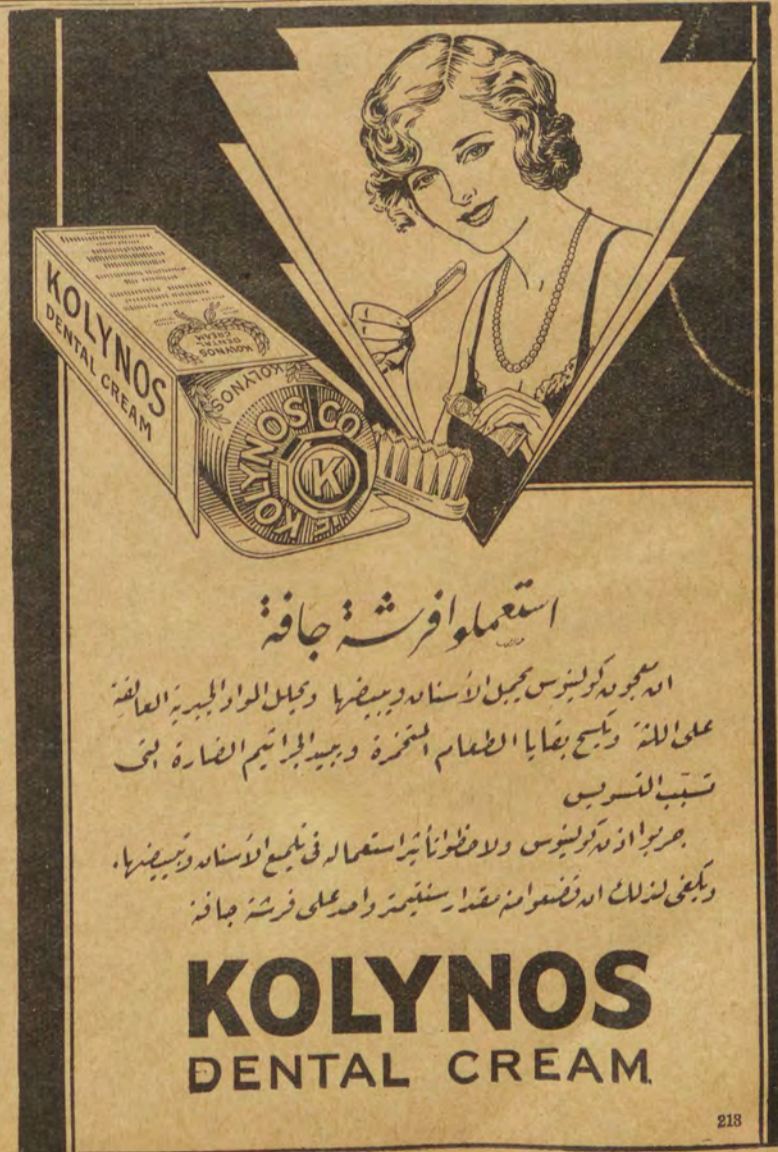 KOLYNOS
DENTAL CREAM
KOLYNOS
DENTAL
CREAM
KOLYNOS
KOLYNOS CO
K
استعملوا فرشة جافة
ان معجون كولينوس يجمل الأسنان ويبيضها ويحلل المواد الجيرية العالقة
على اللثة ويكسح بقايا الطعام المتخمرة ويبيد الجراثيم الضارة التى
تسبّب التسويس
جربوا اذن كولينوس ولاحظوا تأثير استعماله فى تلميع الأسنان وتبييضها.
ويكفى لذلك ان تضعوا منه مقدار سنتيمتر واحد على فرشة جافة
KOLYNOS
DENTAL CREAM
213